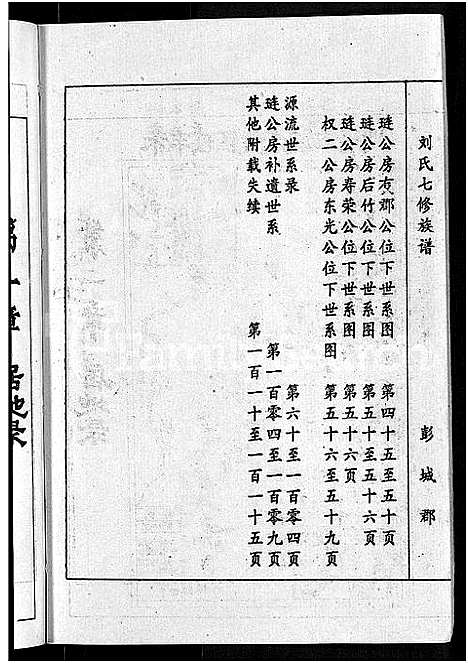 刘氏七修族谱 彭城郡
琏公房友郡公位下世系图 第四十五至五十页
琏公房后竹公位下世系图 第五十至五十六页
琏公房寿荣公位下世系图 第五十六页
权二公房东光公位下世系图 第五十六至五十九页
源流世系录 第六十至一百零四页
琏公房补遗世系 第一百零四至一百零九页
其他附载失续 第一百一十至一百一十五页